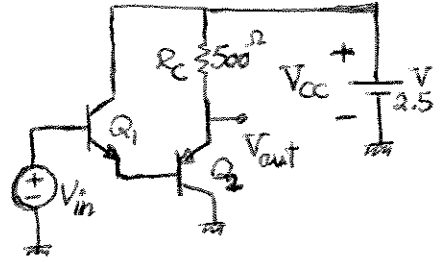 R_C 500Ω
V_CC
+
-
V
2.5
Q₁
V_out
Q₂
+
-
V_in